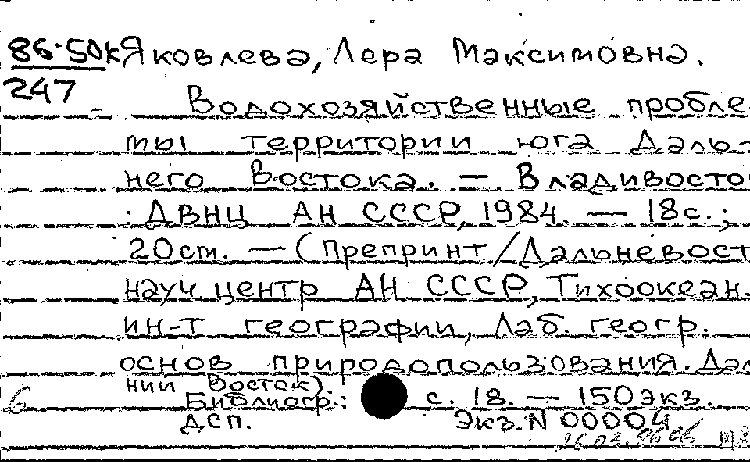 86-50к Яковлева, Лера Максимовна.
247
Водохозяйственные пробле
мы территории юга Даль-
него Востока. — Владивосто
: ДВНЦ АН СССР, 1984. — 18с.;
20см. — (Препринт / Дальневост
науч. центр АН СССР, Тихоокеан.
ин-т географии, Лаб. геогр.
основ природопользования. Дал
ний Восток).
6 Библиогр.: с. 18. — 150экз.
ДСП. Экз. N 00004